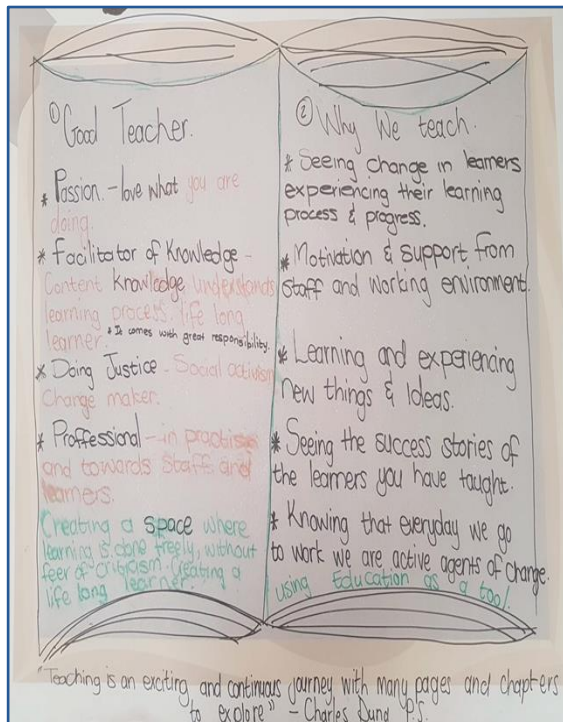 ① Good Teacher.
* Passion. - love what you are
doing.
* Facilitator of Knowledge -
Content knowledge understands
learning process. life long
learner. * It comes with great responsibility.
* Doing Justice - Social activism
Change maker.
* Proffessional - in practise
and towards staff and
learners.
Creating a space where
learning is done freely, without
feer of criticism. Creating a
life long learner.
② Why We teach.
* Seeing change in learners
experiencing their learning
process & progress.
* Motivation & support from
staff and working environment.
* Learning and experiencing
new things & Ideas.
* Seeing the success stories of
the learners you have taught.
* Knowing that everyday we go
to work we are active agents of change.
using Education as a tool.
"Teaching is an exciting and continuous journey with many pages and chapters
to explore" - Charles Dund P.S